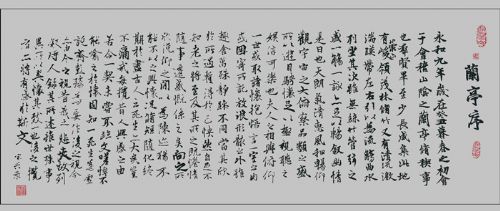 蘭亭序
永和九年歲在癸丑暮春之初會
于會稽山陰之蘭亭脩禊事
也羣賢畢至少長咸集此地
有崇山峻領茂林脩竹又有清流激
湍暎帶左右引以為流觴曲水
列坐其次雖無絲竹管弦之
盛一觴一詠亦足以暢敘幽情
是日也天朗氣清惠風和暢仰
觀宇宙之大俯察品類之盛
所以遊目騁懷足以極視聽之
娛信可樂也夫人之相與俯仰
一世或取諸懷抱悟言一室之內
或因寄所託放浪形骸之外雖
趣舍萬殊靜躁不同當其欣
於所遇暫得於己快然自足不
知老之將至及其所之既惓情
隨事遷感慨係之矣向之所
欣俛仰之閒以為陳迹猶不
能不以之興懷況脩短隨化終
期於盡古人云死生亦大矣豈
不痛哉每攬昔人興感之由
若合一契未嘗不臨文嗟悼不
能喻之於懷固知一死生為虛
誕齊彭殤為妄作後之視今
亦由今之視昔悲夫故列
敘時人錄其所述雖世殊事
異所以興懷其致一也後之攬
者亦將有感於斯文